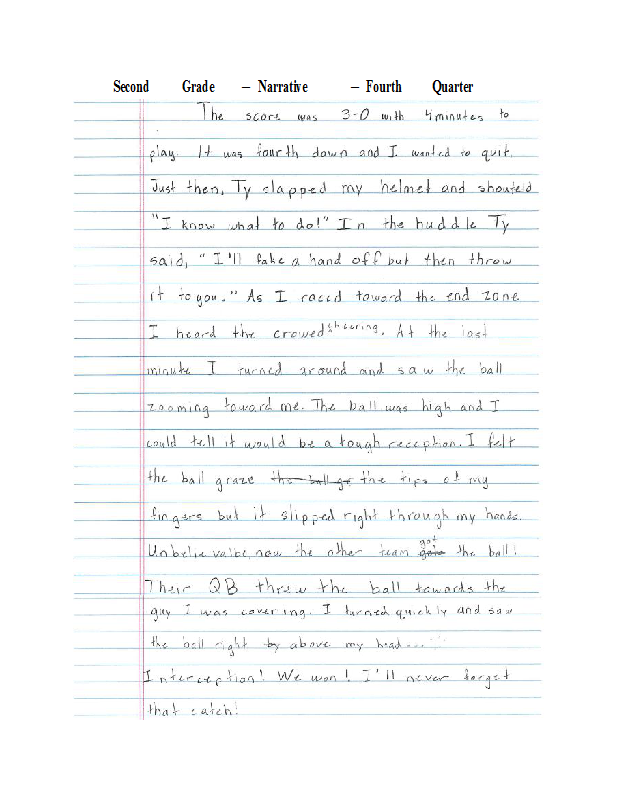 Second Grade – Narrative – Fourth Quarter
The score was 3-0 with 4 minutes to
play. It was fourth down and I wanted to quit.
Just then, Ty clapped my helmet and shouteid
"I know what to do!" In the huddle Ty
said, "I'll fake a hand off but then throw
it to you." As I raced toward the end zone
I heard the crowed cheering. At the last
minute I turned around and saw the ball
zooming toward me. The ball was high and I
could tell it would be a tough reception. I felt
the ball graze the ball go the tips of my
fingers but it slipped right through my hands.
Unbelievalbe, now the other team got the ball!
Their QB threw the ball towards the
guy I was covering. I turned quickly and saw
the ball right by above my head....
Interception! We won! I'll never forget
that catch!